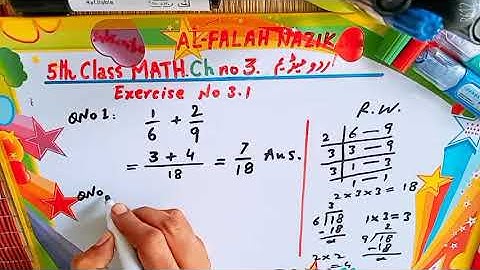 AL-FALAH NAZIK
5th Class MATH. Ch no 3. اردو میڈیم
Exercise No 3.1
QNo 1: 1/6 + 2/9
= (3 + 4)/18 = 7/18 Ans.
QNo
R.W.
2 | 6 — 9
3 | 3 — 9
3 | 1 — 3
1 — 1
2 x 3 x 3 = 18
3
6 √18
- 18
1 x 3 = 3
2
9 √18
- 18
2 x 2
= 4